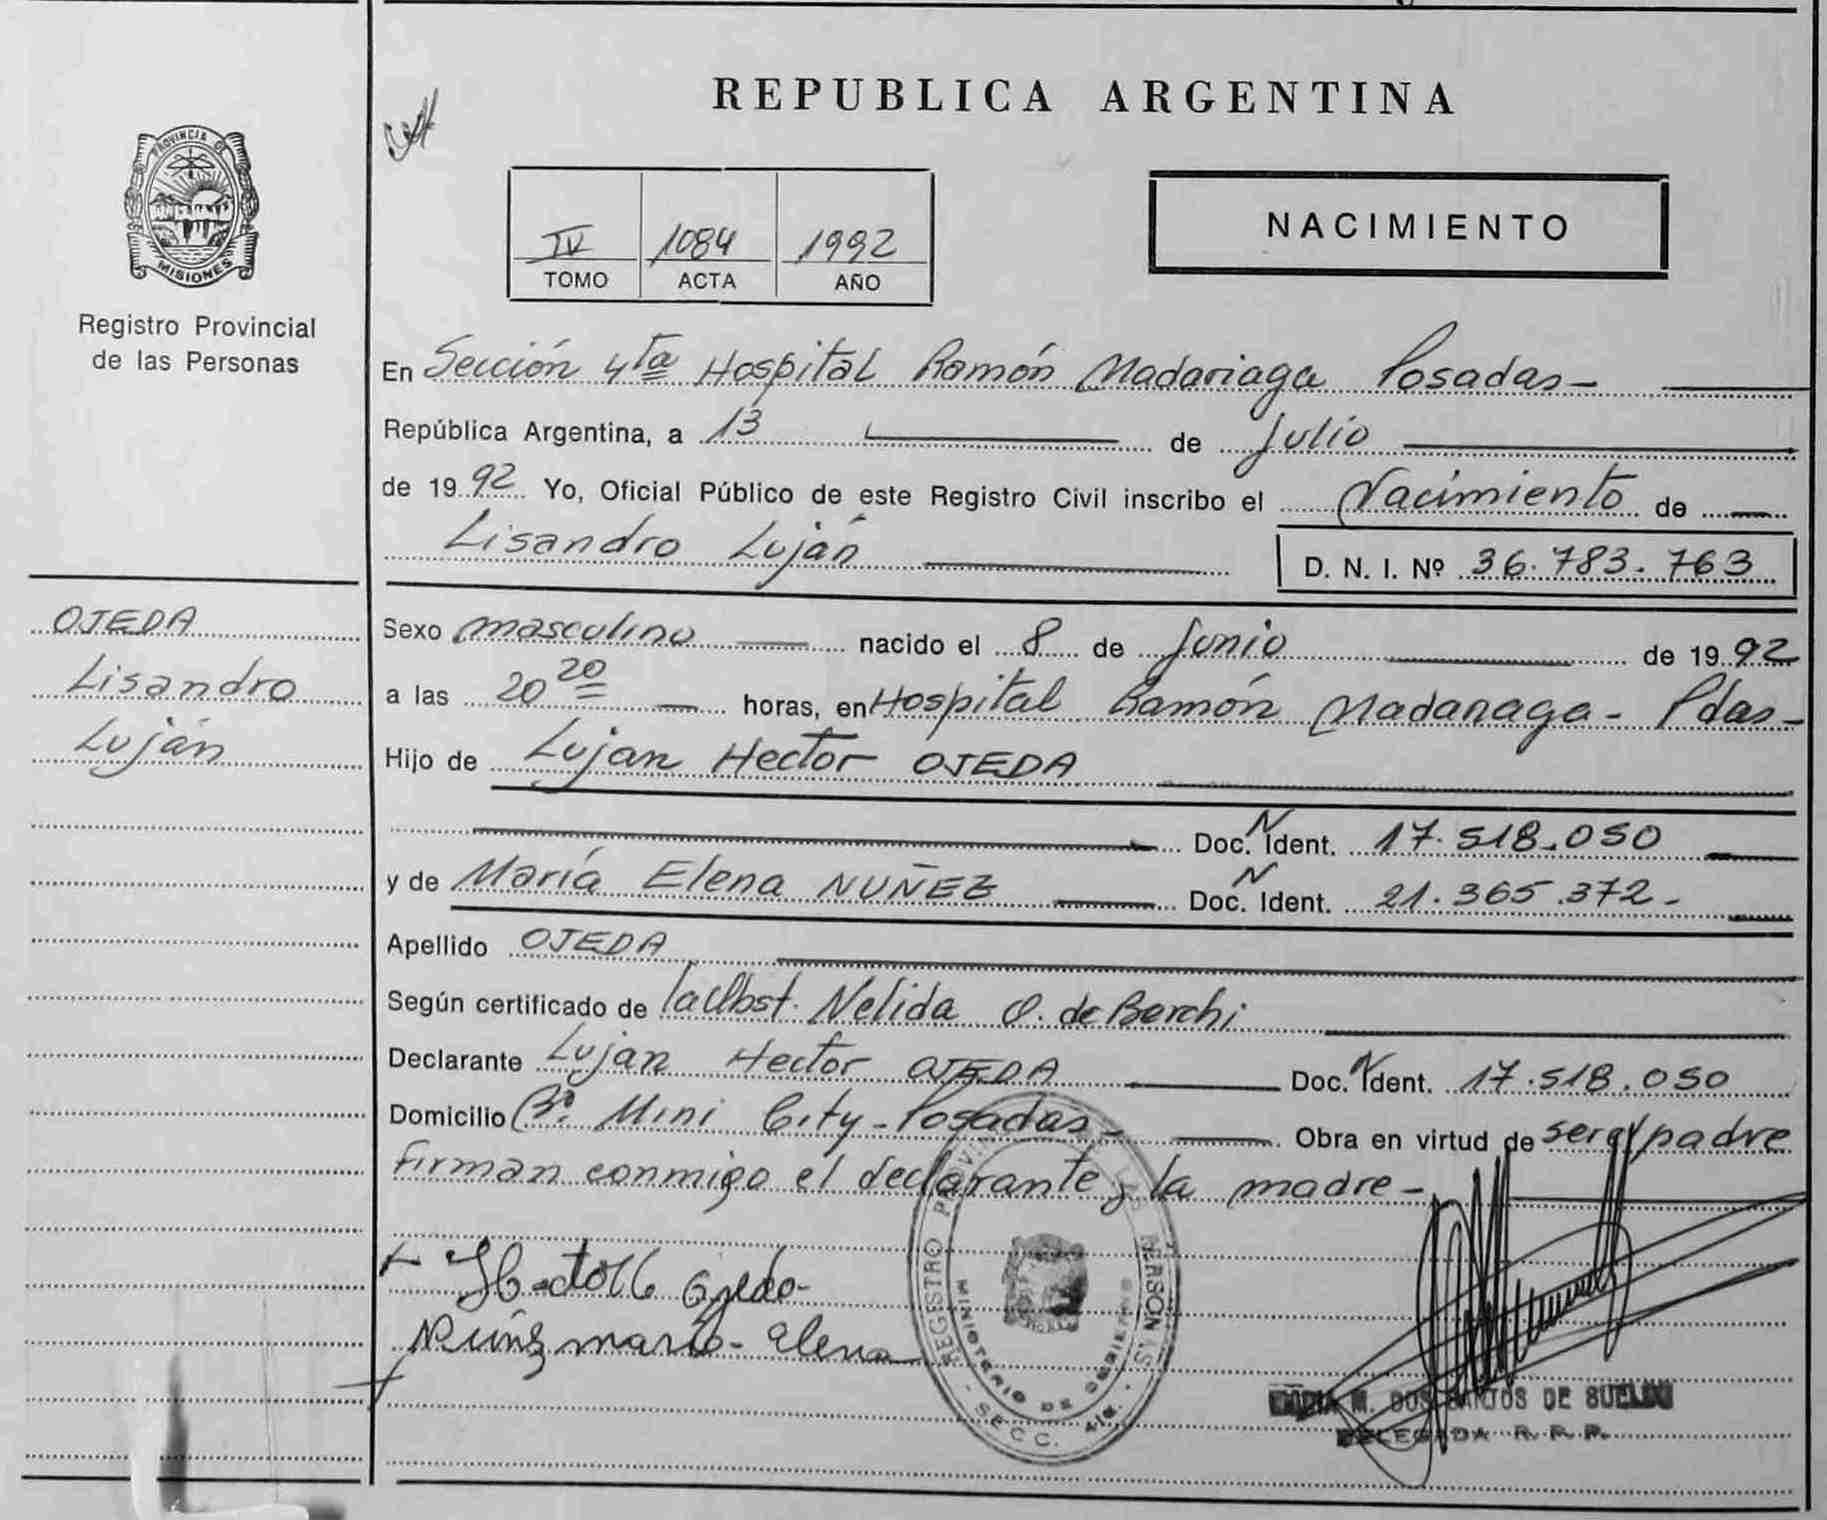 REPUBLICA ARGENTINA
PROVINCIA DE
MISIONES
Registro Provincial
de las Personas
IV 1084 1992
TOMO ACTA AÑO
NACIMIENTO
En Sección 4ta Hospital Ramón Madariaga Posadas-
República Argentina, a 13 de Julio
de 1992 Yo, Oficial Público de este Registro Civil inscribo el Nacimiento de
Lisandro Luján D. N. I. Nº 36.783.763
OJEDA
Lisandro
Luján
Sexo masculino nacido el 8 de Junio de 1992
a las 20 20 horas, en Hospital Ramón Madariaga - Pdas-
Hijo de Lujan Hector OJEDA
Doc. N Ident. 17.518.050
y de María Elena NUÑEZ Doc. N Ident. 21.365.372-
Apellido OJEDA
Según certificado de la Obst. Nelida O. de Berchi
Declarante Lujan Hector OJEDA Doc. N Ident. 17.518.050
Domicilio Bº. Mini City - Posadas- Obra en virtud de ser el padre
Firman conmigo el declarante y la madre-
Ojeda
Nuñez maria- Elena
REGISTRO PROV. DE LAS PERSONAS
MINISTERIO DE GOBIERNO
- SECC. 4ta. -
M. DOS SANTOS DE
DELEGADA R. P. P.